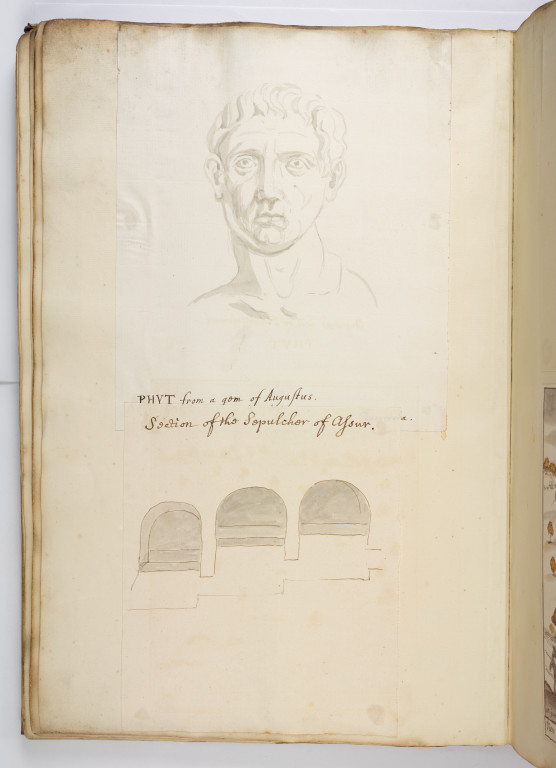 PHVT from a gem of Augustus.
Section of the Sepulcher of Assur. a.